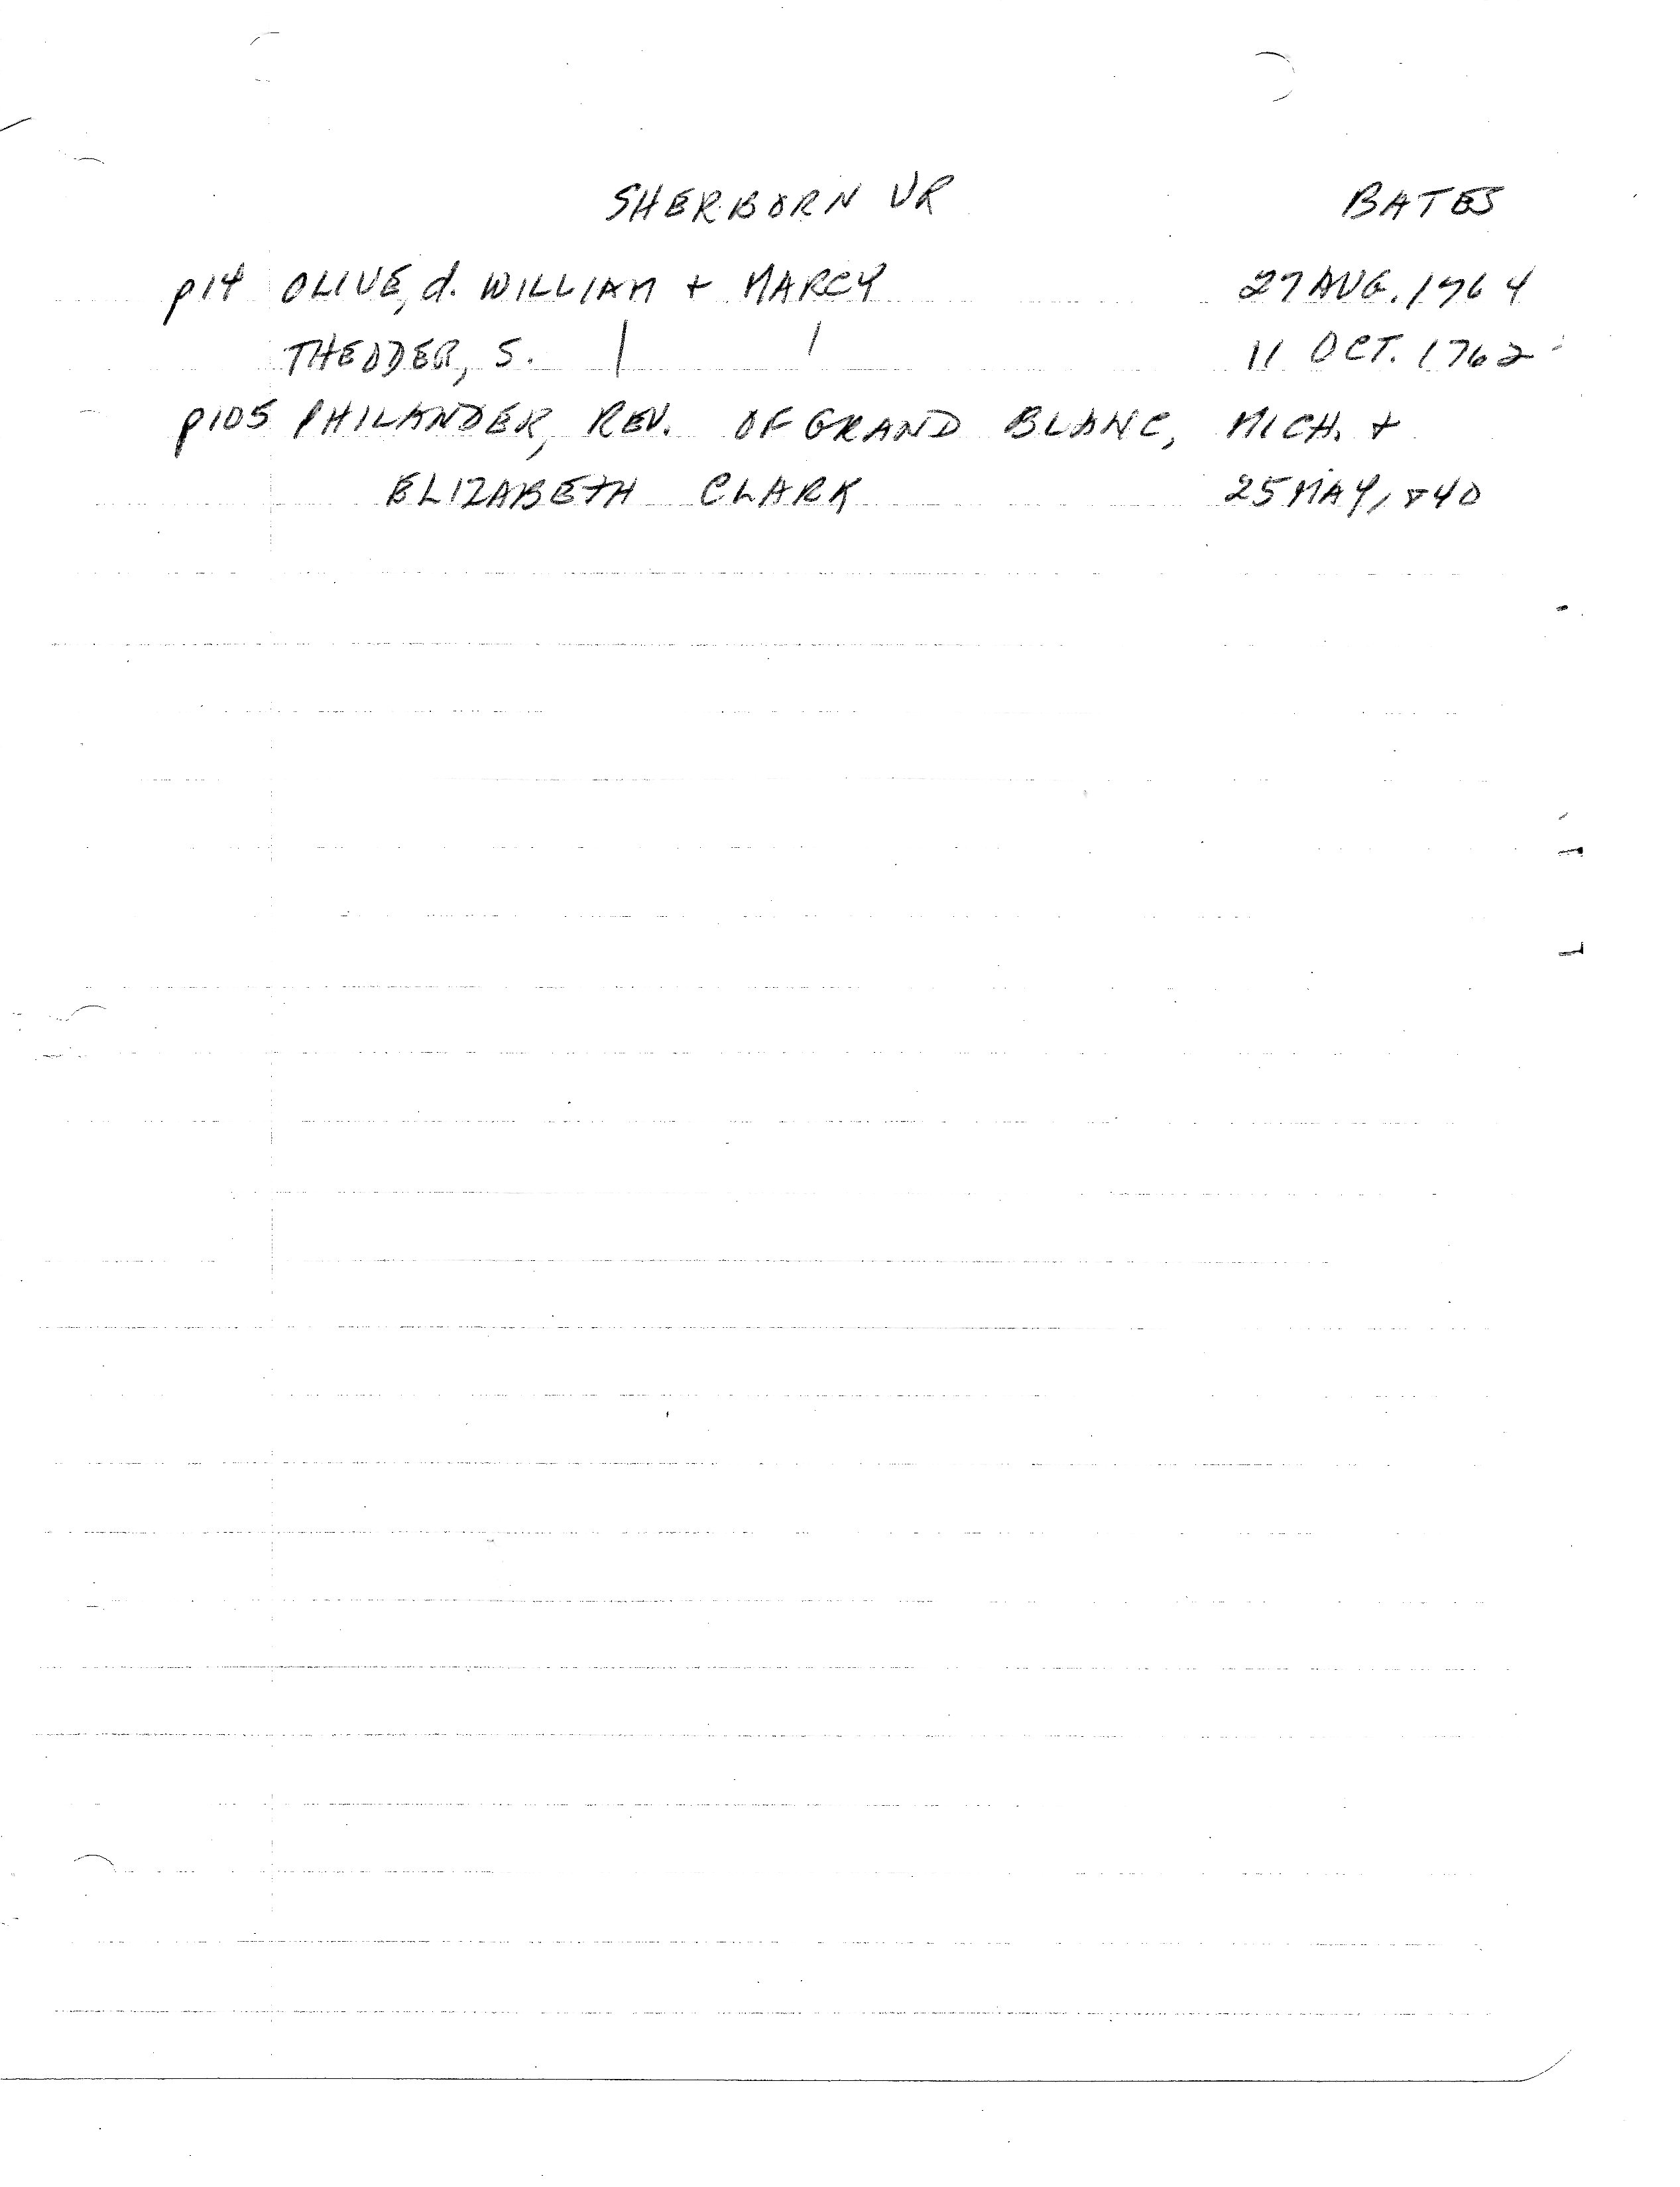 SHERBORN VR BATES
p14 OLIVE, d. WILLIAM + MARCY 27 AUG. 1764
THEODER, S. | | 11 OCT. 1762
p105 PHILANDER, REV. OF GRAND BLANC, MICH. +
ELIZABETH CLARK 25 MAY, 840